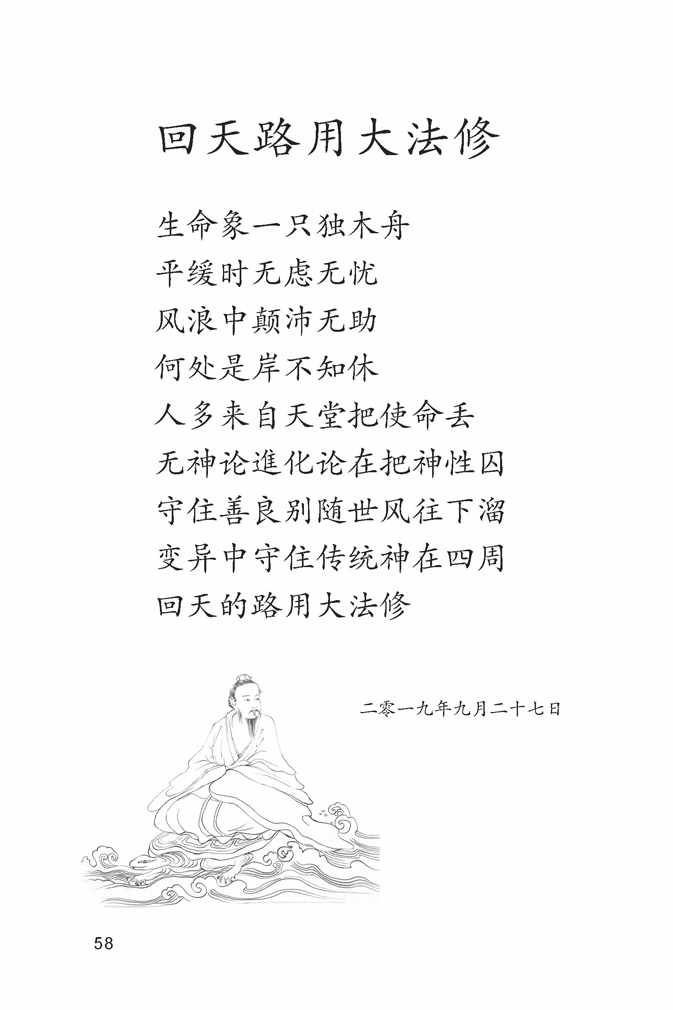 回天路用大法修
生命象一只独木舟
平缓时无虑无忧
风浪中颠沛无助
何处是岸不知休
人多来自天堂把使命丢
无神论進化论在把神性囚
守住善良别随世风往下溜
变异中守住传统神在四周
回天的路用大法修
二零一九年九月二十七日
58